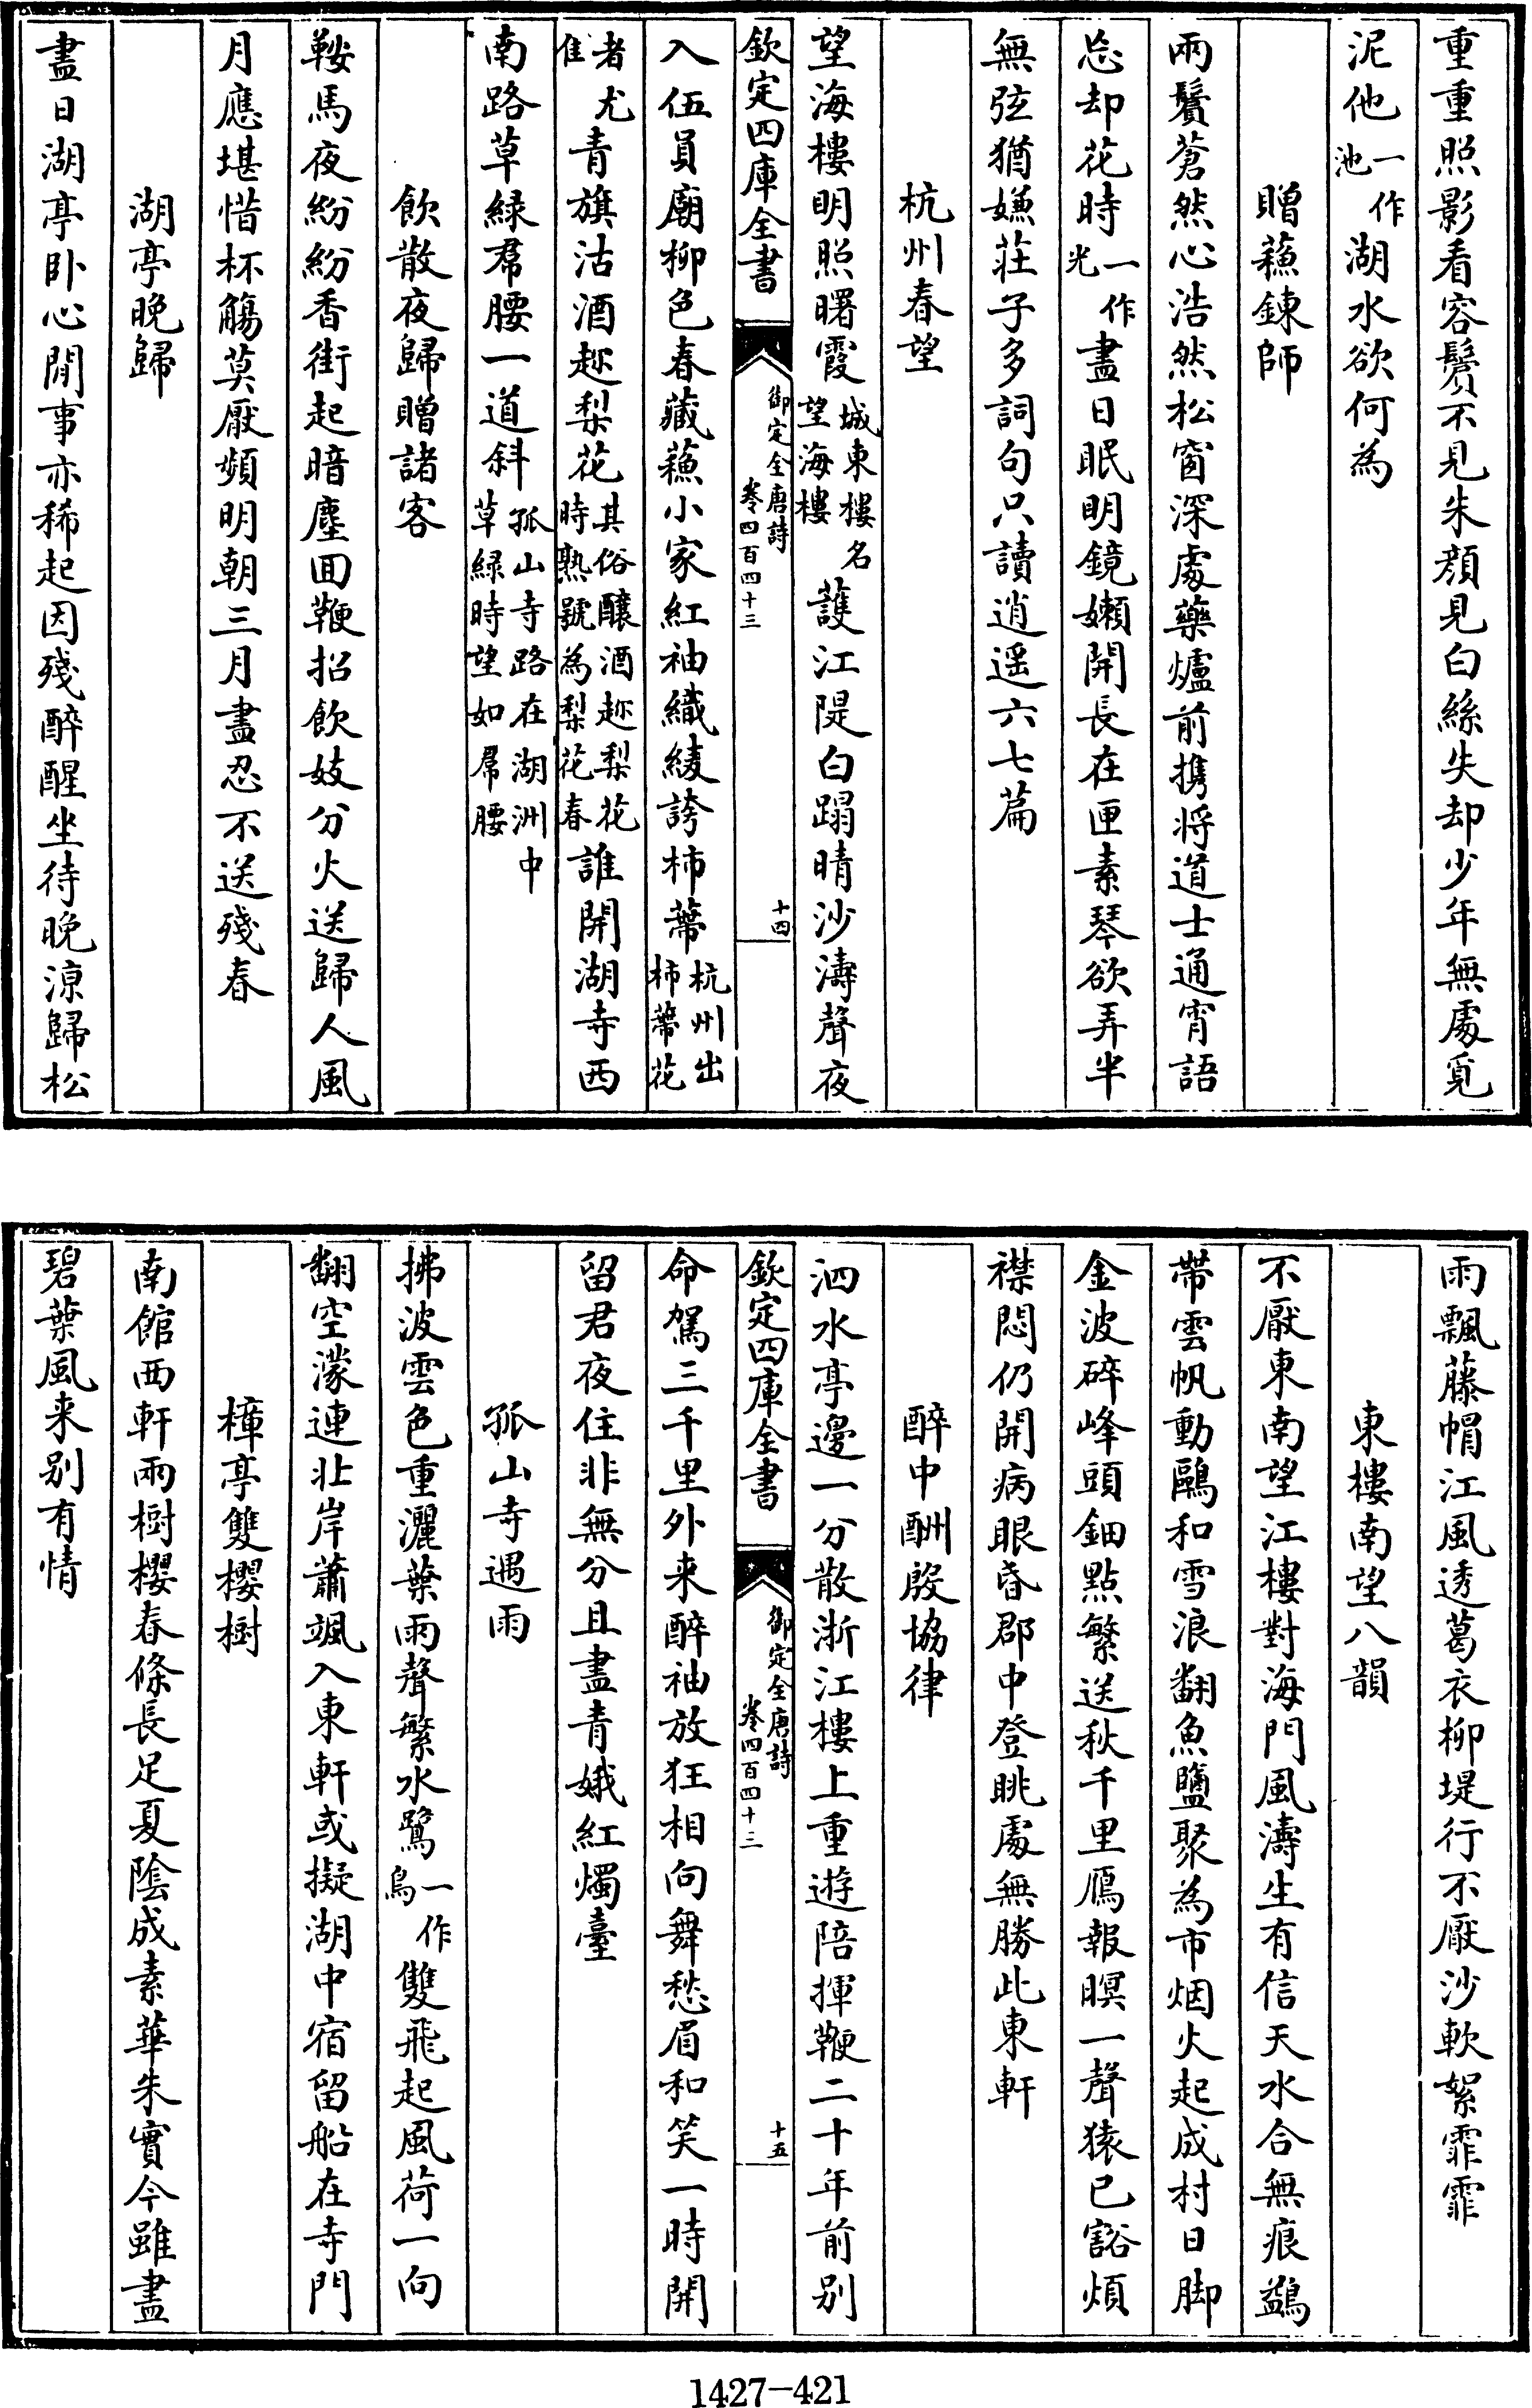 重重照影看容鬢不見朱顔見白絲失却少年無處覓
泥他一作池湖水欲何為
贈蘓鍊師
兩鬢蒼然心浩然松窗深處藥爐前携將道士通宵語
忘却花時一作光盡日眠明鏡嬾開長在匣素琴欲弄半
無弦猶嫌莊子多詞句只讀逍遥六七篇
杭州春望
望海樓明照曙霞城東樓名望海樓護江隄白蹋晴沙濤聲夜
欽定四庫全書
御定全唐詩
卷四百四十三
十四
入伍員廟柳色春藏蘓小家紅袖織綾誇柿蔕杭州出柿蔕花
者尤佳青旗沽酒趂梨花其俗釀酒趂梨花時熟號為梨花春誰開湖寺西
南路草緑帬腰一道斜孤山寺路在湖洲中草緑時望如帬腰
飲散夜歸贈諸客
鞍馬夜紛紛香街起暗塵回鞭招飲妓分火送歸人風
月應堪惜杯觴莫厭頻明朝三月盡忍不送殘春
湖亭晚歸
盡日湖亭卧心閒事亦稀起因殘醉醒坐待晚涼歸松
雨飄藤帽江風透葛衣柳堤行不厭沙軟絮霏霏
東樓南望八韻
不厭東南望江樓對海門風濤生有信天水合無痕鷁
帶雲帆動鷗和雪浪翻魚鹽聚為市烟火起成村日脚
金波碎峰頭鈿點繁送秋千里鴈報暝一聲猿已豁煩
襟悶仍開病眼昏郡中登眺處無勝此東軒
醉中酬殷協律
泗水亭邊一分散浙江樓上重遊陪揮鞭二十年前别
欽定四庫全書
御定全唐詩
卷四百四十三
十五
命駕三千里外来醉袖放狂相向舞愁眉和笑一時開
留君夜住非無分且盡青娥紅燭臺
孤山寺遇雨
拂波雲色重灑葉雨聲繁水鷺一作鳥雙飛起風荷一向
翻空濛連北岸蕭颯入東軒或擬湖中宿留船在寺門
樟亭雙櫻樹
南館西軒兩樹櫻春條長足夏陰成素華朱實今雖盡
碧葉風来别有情
1427-421